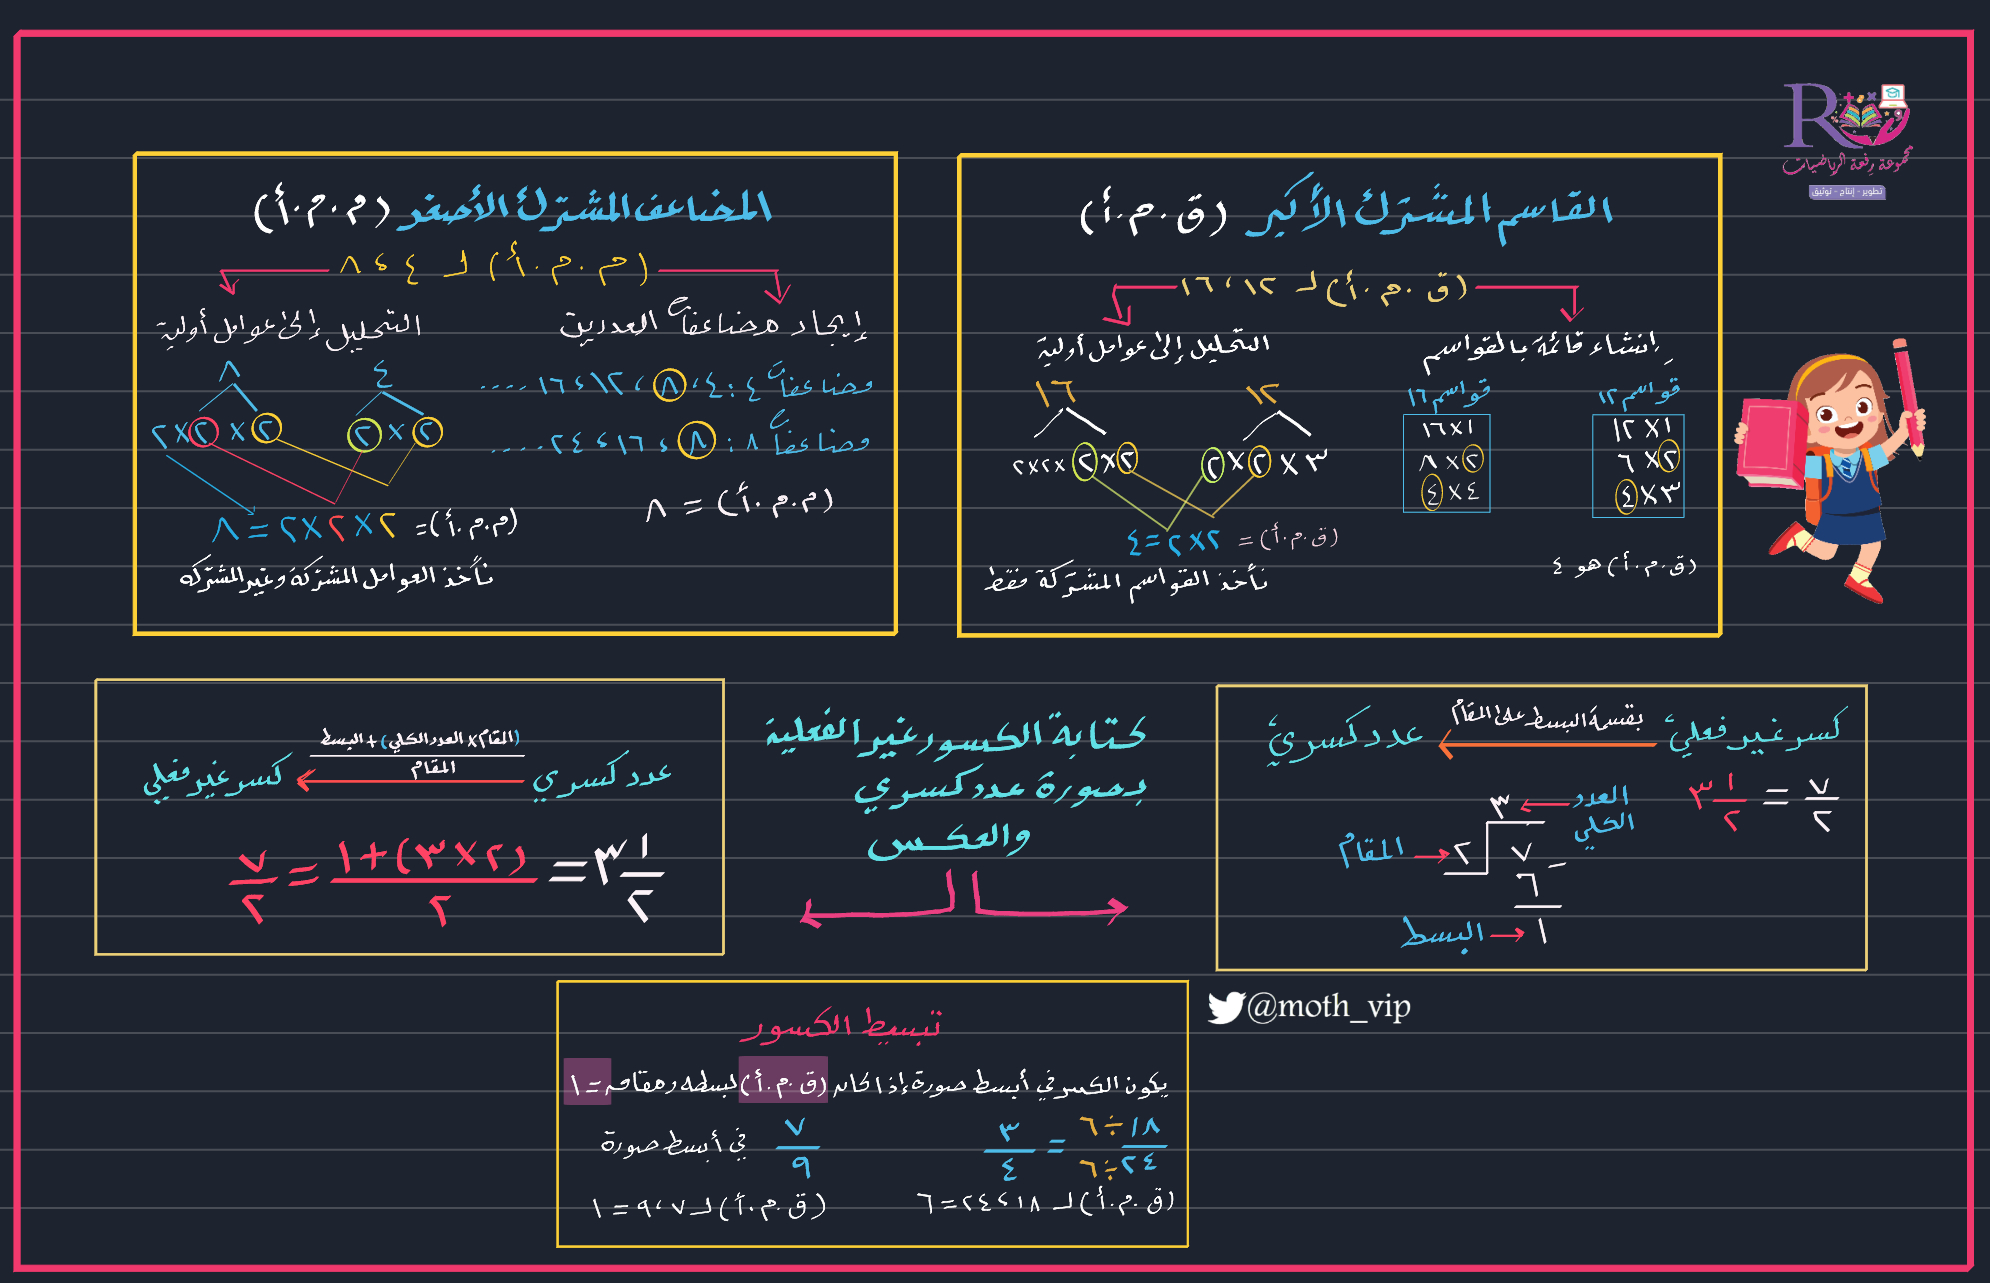 مجموعة رفعة الرياضيات
تطوير - إنتاج - توثيق
القاسم المشترك الأكبر (ق.م.أ)
(ق.م.أ) لـ ١٢ ، ١٦
إنشاء قائمة بالقواسم
قواسم ١٢
١ × ١٢
٢ × ٦
٣ × ٤
قواسم ١٦
١ × ١٦
٢ × ٨
٤ × ٤
(ق.م.أ) هو ٤
التحليل إلى عوامل أولية
١٢
٣ × ٢ × ٢
١٦
٢ × ٢ × ٢ × ٢
(ق.م.أ) = ٢ × ٢ = ٤
نأخذ القواسم المشتركة فقط
المضاعف المشترك الأصغر (م.م.أ)
(م.م.أ) لـ ٤ ، ٨
إيجاد مضاعفات العددين
مضاعفات ٤ : ٤ ، ٨ ، ١٢ ، ١٦ ....
مضاعفات ٨ : ٨ ، ١٦ ، ٢٤ ....
(م.م.أ) = ٨
التحليل إلى عوامل أولية
٤
٢ × ٢
٨
٢ × ٢ × ٢
(م.م.أ) = ٢ × ٢ × ٢ = ٨
نأخذ العوامل المشتركة وغير المشتركة
كتابة الكسور غير الفعلية
بصورة عدد كسري
والعكس
كسر غير فعلي بقسمة البسط على المقام عدد كسري
٧/٢ = ٣ ١/٢
العدد الكلي
٣
المقام
٢
٧ −
٦
البسط
١
عدد كسري (المقام × العدد الكلي) + البسط / المقام كسر غير فعلي
٣ ١/٢ = (٢ × ٣) + ١ / ٢ = ٧/٢
@moth_vip
تبسيط الكسور
يكون الكسر في أبسط صورة إذا كان (ق.م.أ) لبسطه ومقامه = ١
١٨ ÷ ٦ / ٢٤ ÷ ٦ = ٣/٤
(ق.م.أ) لـ ١٨ ، ٢٤ = ٦
٧/٩ في أبسط صورة
(ق.م.أ) لـ ٧ ، ٩ = ١